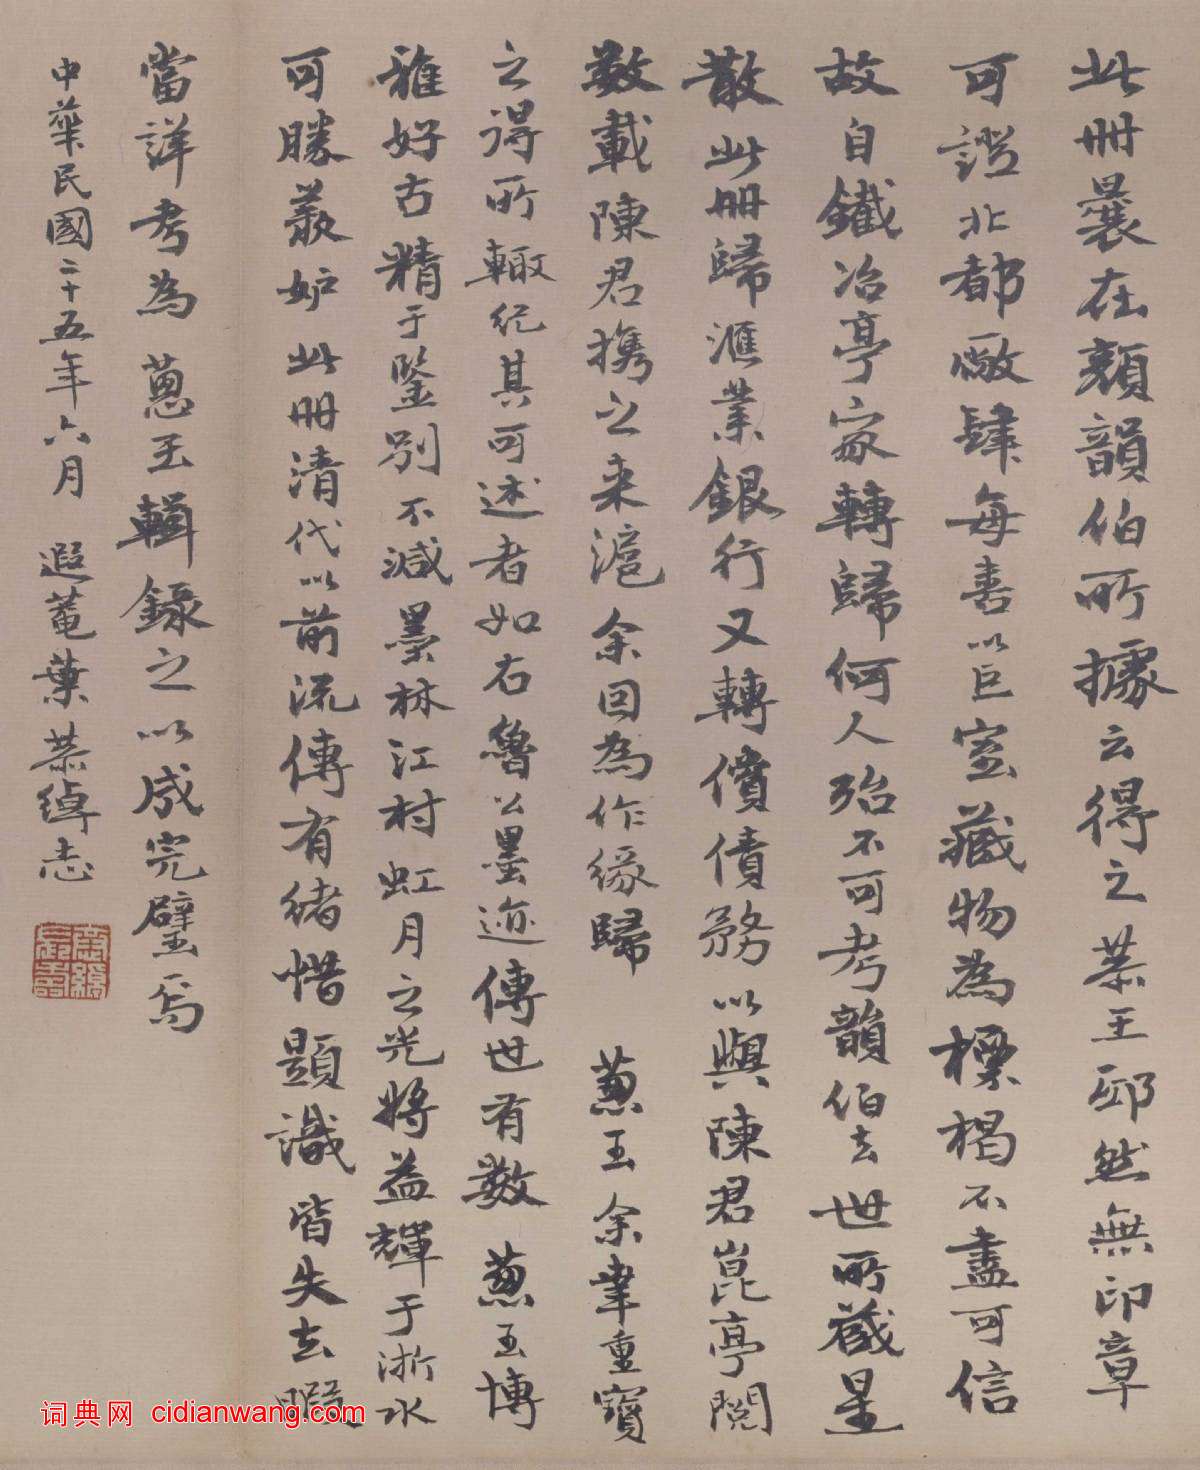 此冊曩在顏韻伯所據云得之恭王邸然無印章
可證北都廠肆每喜以巨室藏物為標楬不盡可信
故自鐵冶亭家轉歸何人殆不可考韻伯去世所藏星
散此冊歸滙業銀行又轉償債務以與陳君崑亭閱
數載陳君攜之来滬余因為作緣歸 蔥玉余韋重寶
之得所輙紀其可述者如右魯公墨迹傳世有數 蔥玉博
雅好古精于鑒别不減墨林江村虹月之光將益輝于浙水
可勝羨妒此冊清代以前流傳有緒惜題識皆失去暇
當詳考為 蔥玉輯録之以成完璧焉
中華民國二十五年六月 遐菴葉恭綽志
词典网 cidianwang.com